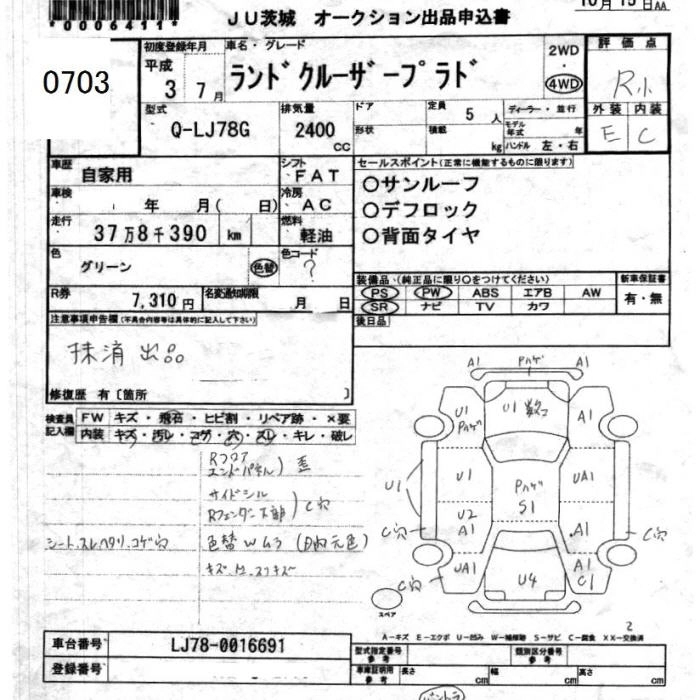 *0006411*
JU茨城 オークション出品申込書
10月15日AA
0703
初度登録年月 車名・グレード
平成 3 7月
ランドクルーザープラド
2WD
・
4WD
評価点
R小
型式 排気量
Q-LJ78G 2400 CC
ドア 定員 5 人
形状 積載 kg
ディーラー・並行
モデル年式 年
ハンドル 左・右
外装 内装
E C
車歴 自家用
シフト FAT
車検 年 月( 日)
冷房 AC
走行 37万8千390 km
燃料 軽油
色 グリーン 色替
色コード ?
R券 7,310円
名変通知期限 月 日
セールスポイント(正常に機能するものに限ります)
○サンルーフ
○デフロック
○背面タイヤ
装備品・(純正品に限り○をつけてください)
PS PW ABS エアB AW
SR ナビ TV カワ
新車保証書
有・無
後日品
注意事項申告欄(不具合内容等は具体的に記入して下さい)
抹消出品
修復歴 有〔箇所 〕
検査員記入欄
FW キズ・飛石・ヒビ割・リペア跡・×要
内装 キズ・汚レ・コゲ・穴・スレ・キレ・破レ
Rフロア
エンドパネル) 歪
サイドシル
Rフェンダー下部) C穴
シート.スレ.ヘタリ.コゲ穴
色替Wムラ(白 元色)
A1 Pハゲ A1
U1 Pハゲ
U1 数コ
A1
U1
U1
Pハゲ
S1
UA1
U2
A1
A1
C穴
C穴
UA1
U4
A1
C1
C穴
スペア
2
A－キズ E－エクボ U－凹み W－補修跡 S－サビ C－腐食 XX－交換済
車台番号 LJ78-0016691
登録番号
型式指定番号 参考
類別区分番号 参考
車庫証明用 参考 長さ cm 幅 cm 高さ cm